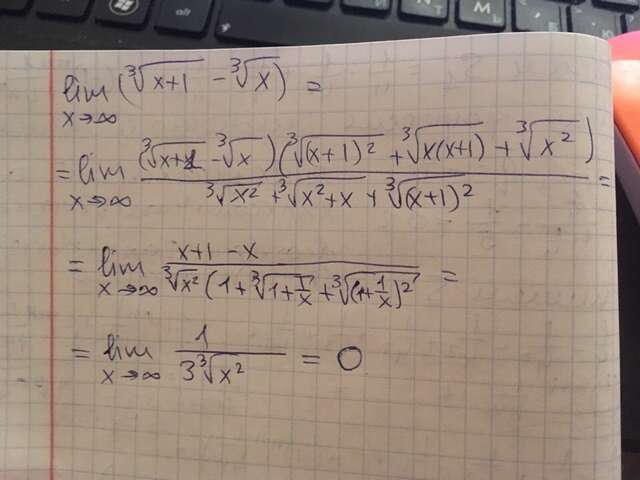 lim x→∞ (∛(x+1) - ∛x) =
= lim x→∞ (∛(x+1) - ∛x)(∛((x+1)²) + ∛(x(x+1)) + ∛(x²)) / (∛(x²) + ∛(x²+x) + ∛((x+1)²)) =
= lim x→∞ (x+1-x) / (∛(x²) (1 + ∛(1+1/x) + ∛((1+1/x)²)) =
= lim x→∞ 1 / (3∛(x²)) = 0